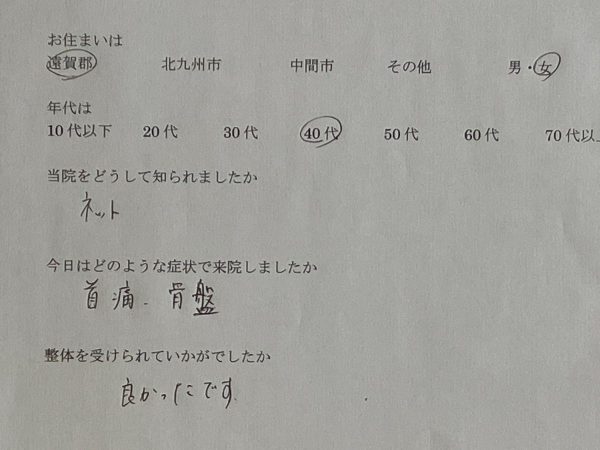 お住まいは
遠賀郡 北九州市 中間市 その他 男・女
年代は
10代以下 20代 30代 40代 50代 60代 70代以上
当院をどうして知られましたか
ネット
今日はどのような症状で来院しましたか
首痛. 骨盤
整体を受けられていかがでしたか
良かったです.